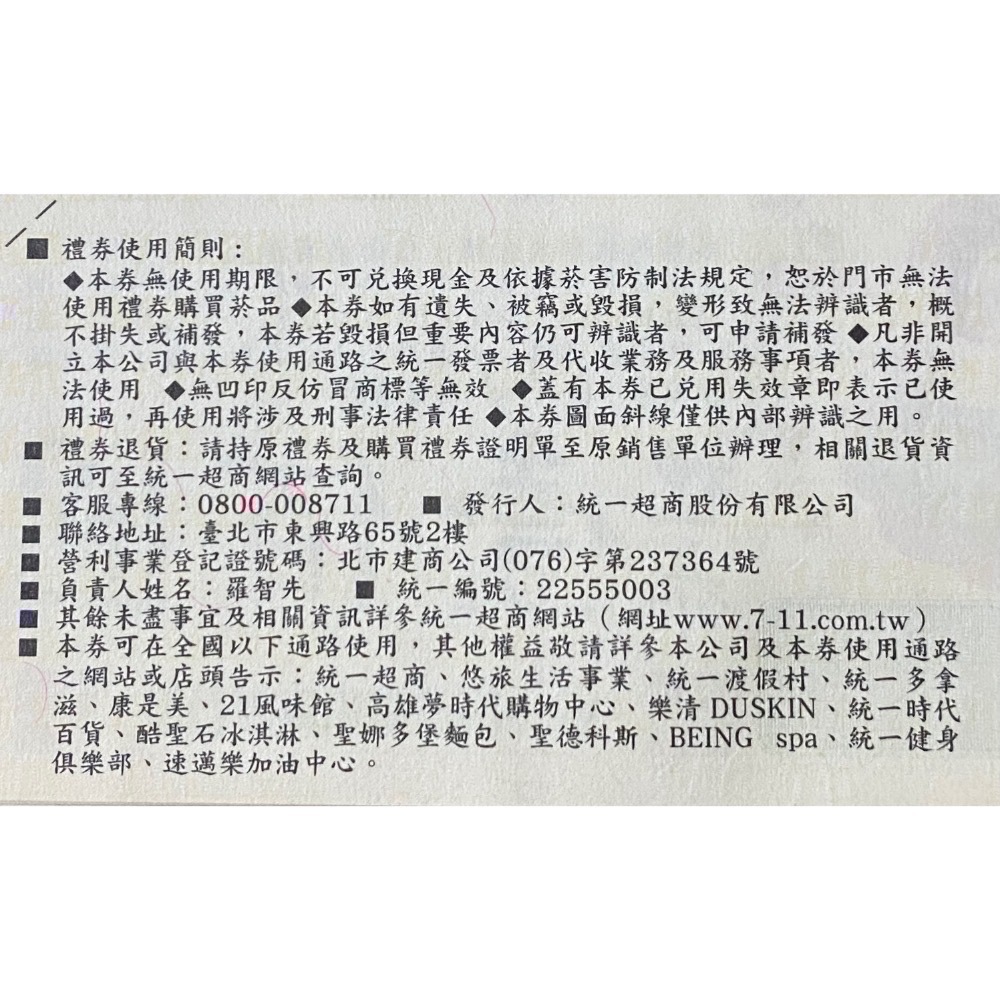 ■ 禮券使用簡則：
◆本券無使用期限，不可兌換現金及依據菸害防制法規定，恕於門市無法
使用禮券購買菸品 ◆本券如有遺失、被竊或毀損，變形致無法辨識者，概
不掛失或補發，本券若毀損但重要內容仍可辨識者，可申請補發 ◆凡非開
立本公司與本券使用通路之統一發票者及代收業務及服務事項者，本券無
法使用 ◆無凹印反仿冒商標等無效 ◆蓋有本券已兌用失效章即表示已使
用過，再使用將涉及刑事法律責任 ◆本券圖面斜線僅供內部辨識之用。
■ 禮券退貨：請持原禮券及購買禮券證明單至原銷售單位辦理，相關退貨資
訊可至統一超商網站查詢。
■ 客服專線：0800-008711 ■ 發行人：統一超商股份有限公司
■ 聯絡地址：臺北市東興路65號2樓
■ 營利事業登記證號碼：北市建商公司(076)字第237364號
■ 負責人姓名：羅智先 ■ 統一編號：22555003
■ 其餘未盡事宜及相關資訊詳參統一超商網站（網址www.7-11.com.tw）
■ 本券可在全國以下通路使用，其他權益敬請詳參本公司及本券使用通路
之網站或店頭告示：統一超商、悠旅生活事業、統一渡假村、統一多拿
滋、康是美、21風味館、高雄夢時代購物中心、樂清 DUSKIN、統一時代
百貨、酷聖石冰淇淋、聖娜多堡麵包、聖德科斯、BEING spa、統一健身
俱樂部、速邁樂加油中心。